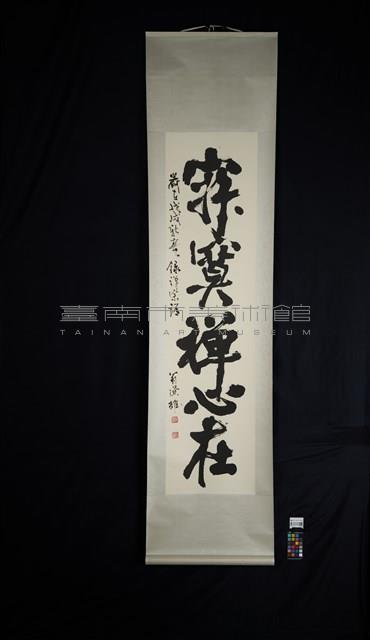 寂寞禪心在
歲在戊戌新春錄禪宗語
臺南市美術館
TAINAN ART MUSEUM